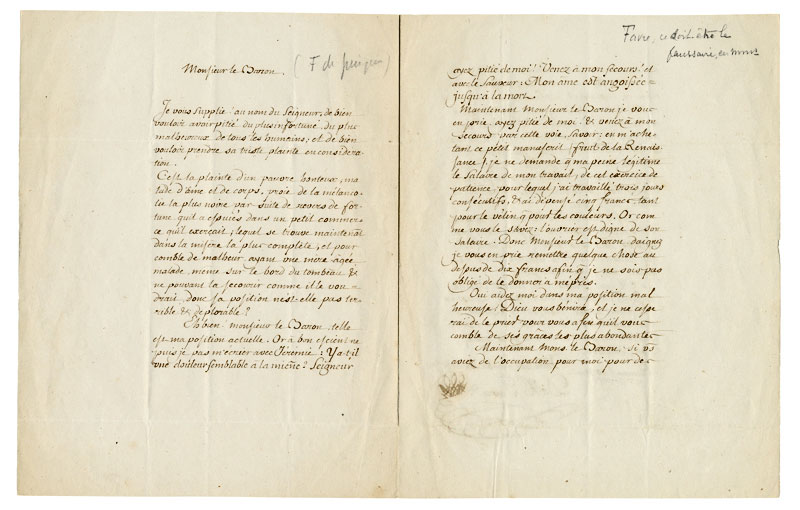 Monsieur le Baron.
(F de
Je vous supplie! au nom du Seigneur, de bien
vouloir avoir pitié du plus infortuné, du plus
malheureux de tous les humains; et de bien
vouloir prendre sa triste plainte en considera-
tion.
C'est la plainte d'un pauvre honteux, ma
lade d'âme et de corps, proie de la mélanco-
lie la plus noire par suite de revers de for-
tune qu'il a essuiés dans un petit commer-
ce qu'il exercait; lequel se trouve maintenat
dans la misère la plus complete, et pour
comble de malheur ayant une mere âgée
malade, meme sur le bord du tombeau &
ne pouvant la secourir comme il le vou=
drait, donc sa position n'est-elle pas ter-
rible & deplorable?
Eh bien! monsieur le Baron, telle
est ma position actuelle. Or à bon escient ne
puis je pas m'ecrier avec Jéremie: Ya-t-il
une douleur semblable à la mieñe? Seigneur
Favre, ce doit être le
faussaire, en
ayez pitié de moi! Venez à mon secours! et
avec le Sauveur: Mon ame est angoissée=
jusqu'à la mort.
Maintenant Monsieur le Baron je vous
en prie, ayez pitié de moi, & venez à mon
secours par cette voie, savoir: en m'ache-
tant ce petit manuscrit (fruit de la Renais
sance) je ne demande q ma peine légitime
le salaire de mon travail, de cet exercice de
patience, pour lequel j'ai travaillé trois jours
consécutifs, & ai dépensé cinq francs, tant
pour le velin q pour les couleurs. Or com
me vous le savez: l'ouvrier est digne de son
salaire. Donc Monsieur le Baron, daignez
je vous en prie remettre quelque chose au
dessus de dix francs afin q je ne sois pas
obligé de le donner à mépris.
Oui aidez moi dans ma position mal
heureuse! Dieu vous bénira, et je ne cesse
rai de le prier pour vous afin qu'il vous
comble de ses grâces les plus abondantes
Maintenant Mons. le Baron, si vs
avez de l'occupation pour moi pour de